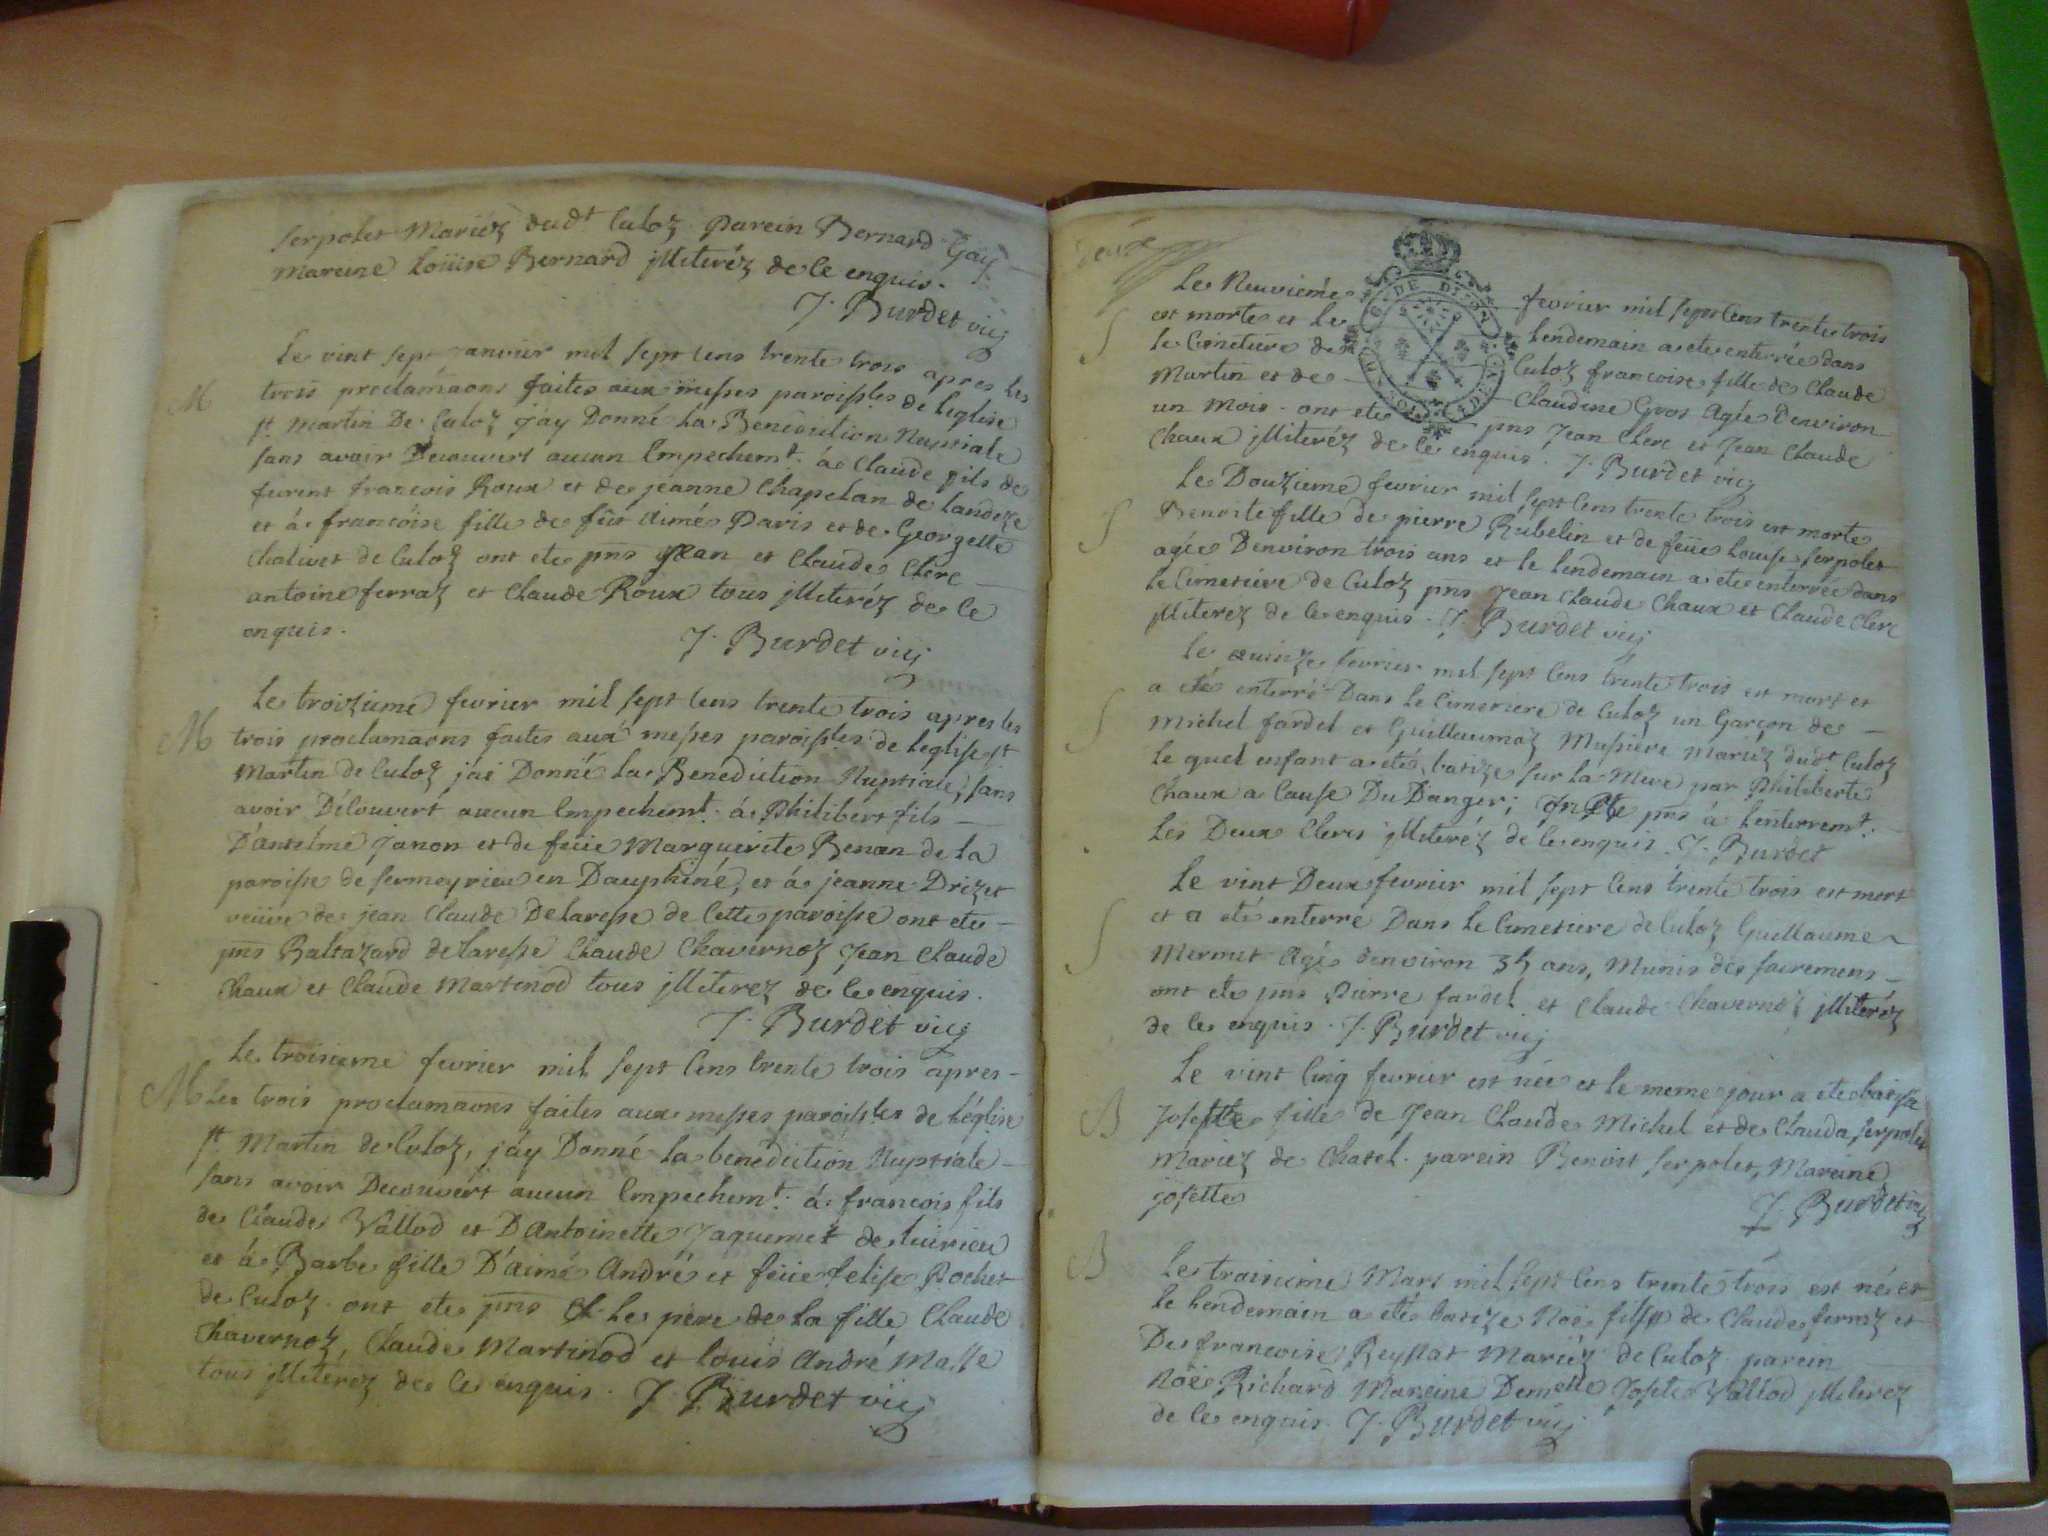 serpolet Mariéz dud.t Culoz Parein Bernard Gay
mareine Loüise Bernard jlliteréz de ce enquis.
J. Burdet vicj
Le vint sept janvier mil sept cens trente trois apres les
M
trois proclamaons faites aux messes paroissles de l'eglise
st. Martin De Culoz j'ay Donné La Benediction Nuptiale
sans avoir Decouvert aucun Empechemt. à Claude fils de
furent francois Roux et de jeanne Chapelan de Landeze
et à francoise fille de fût Aimé Paris et de Georgette
Chalivet de Culoz ont ete pns Jean et Claude Clerc
antoine ferraz et Claude Roux tous jlliteréz de ce
enquis.
J. Burdet vicj
Le troizieme fevrier mil sept cens trente trois apres les
M trois proclamaons faites aux messes paroissles de l'eglise st
Martin de Culoz j'ai Donné La Benediction Nuptiale, sans
avoir Découvert aucun Empechemt. à Philibert fils
D'antelme Janon et de feüe Marguerite Benan de La
paroisse de sermeyrieu en Dauphiné, et à jeanne Drizet
veüve de jean Claude Delaresse de Cette paroisse ont ete
pns Baltazard delaresse Claude Chavernoz Jean Claude
Chaux et Claude Martinod tous jlliterez de ce enquis.
J. Burdet vicj
Le troisieme fevrier mil sept cens trente trois apres
M Les trois proclamaons faites aux messes paroissles de L'église
st. Martin de Culoz, j'ay Donné La benediction Nuptiale
sans avoir Decouvert aucun Empechemt. à francois fils
de Claude Vallod et D'Antoinette Jaquemet de Luirieu
et à Barbe fille D'aimé André et feüe felise Rochet
de Culoz. ont ete pns Le pere de La fille Claude
Chavernoz, Claude Martinod et Louis André Masse
tous jlliteréz de ce enquis. J. Burdet vicj
deux
Le Neuvieme fevrier mil sept cens trente trois
S
est morte et le lendemain a ete enterrée dans
le Cimetiere de Culoz francoise fille de Claude
Martin et de Claudine Gros Agée d'environ
un Mois. ont ete pns Jean Clerc et Jean Claude
Chaux jlliteréz de ce enquis. J. Burdet vicj
Le Douzieme fevrier mil sept cens trente trois est morte
S Benoite fille de pierre Rubelin et de feüe Louise serpolet
agée D'environ trois ans et le lendemain a ete enterrée dans
le Cimetiere de Culoz pns Jean Claude Chaux et Claude Clerc
jlliterez de ce enquis. J. Burdet vicj
Le quinze fevrier mil sept cens trente trois est mort et
S a eté enterré Dans le Cimetiere de Culoz un Garçon de
Michel fardel et Guillaumaz Mussiere Mariez dudt Culoz
le quel enfant a eté batize sur la Mere par Philiberte
Chaux a Cause Du Danger; pns à L'enterremt.
Les Deux Clercs jlliteréz de ce enquis. J. Burdet
Le vint Deux fevrier mil sept cens trente trois est mort
S et a eté enterré Dans le Cimetiere de Culoz Guillaume
Mermet Agé d'environ 35 ans, Munis des sacremens
ont ete pns Pierre fardel et Claude Chavernoz jlliteréz
de ce enquis. J. Burdet vicj
Le vint Cinq fevrier est née et le meme jour a ete batisé
B Josette fille de Jean Claude Michel et de Clauda serpolet
Mariez de Chatel. parein Benoist serpolet, Mareine
josette
J. Burdet vicj
B Le troisieme Mars mil sept cens trente trois est né et
le Lendemain a eté batize Noë fils de Claude ferraz et
De francoise Beyssat Mariéz de Culoz. parein
Noë Richard Mareine Demelle Josete Vallod jlliterez
de ce enquis. J. Burdet vicj